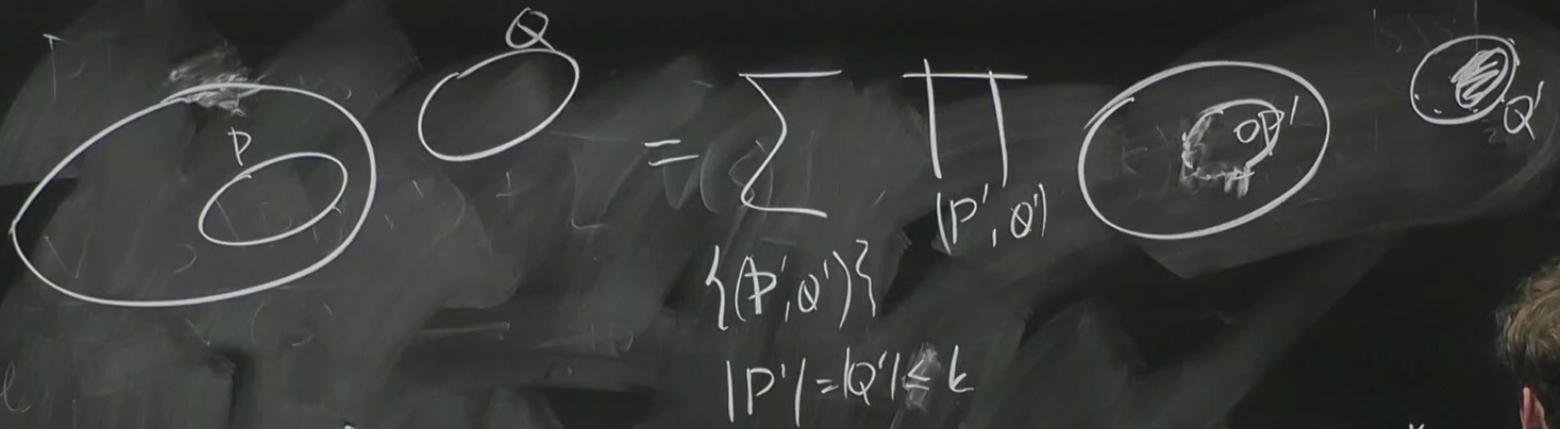 P Q = ∑ ∏ P' Q'
(P', Q')
{(P', Q')}
|P'| = |Q'| ≤ k